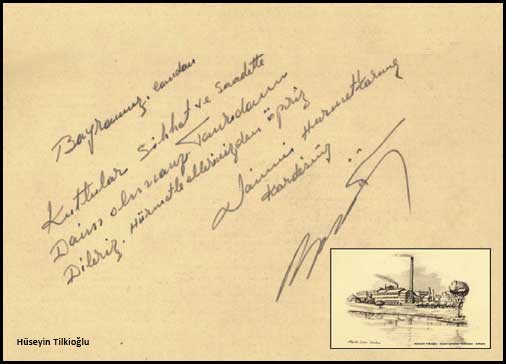 Bayramınız. candan
Kuttular Sıhhat ve Saadette
Daim olmanız Tanrıdan
Dileriz. Hürmetle ellerinizden öperiz
Daimi Hurmetkarınız
Kardeşiniz
Hüseyin Tilkioğlu